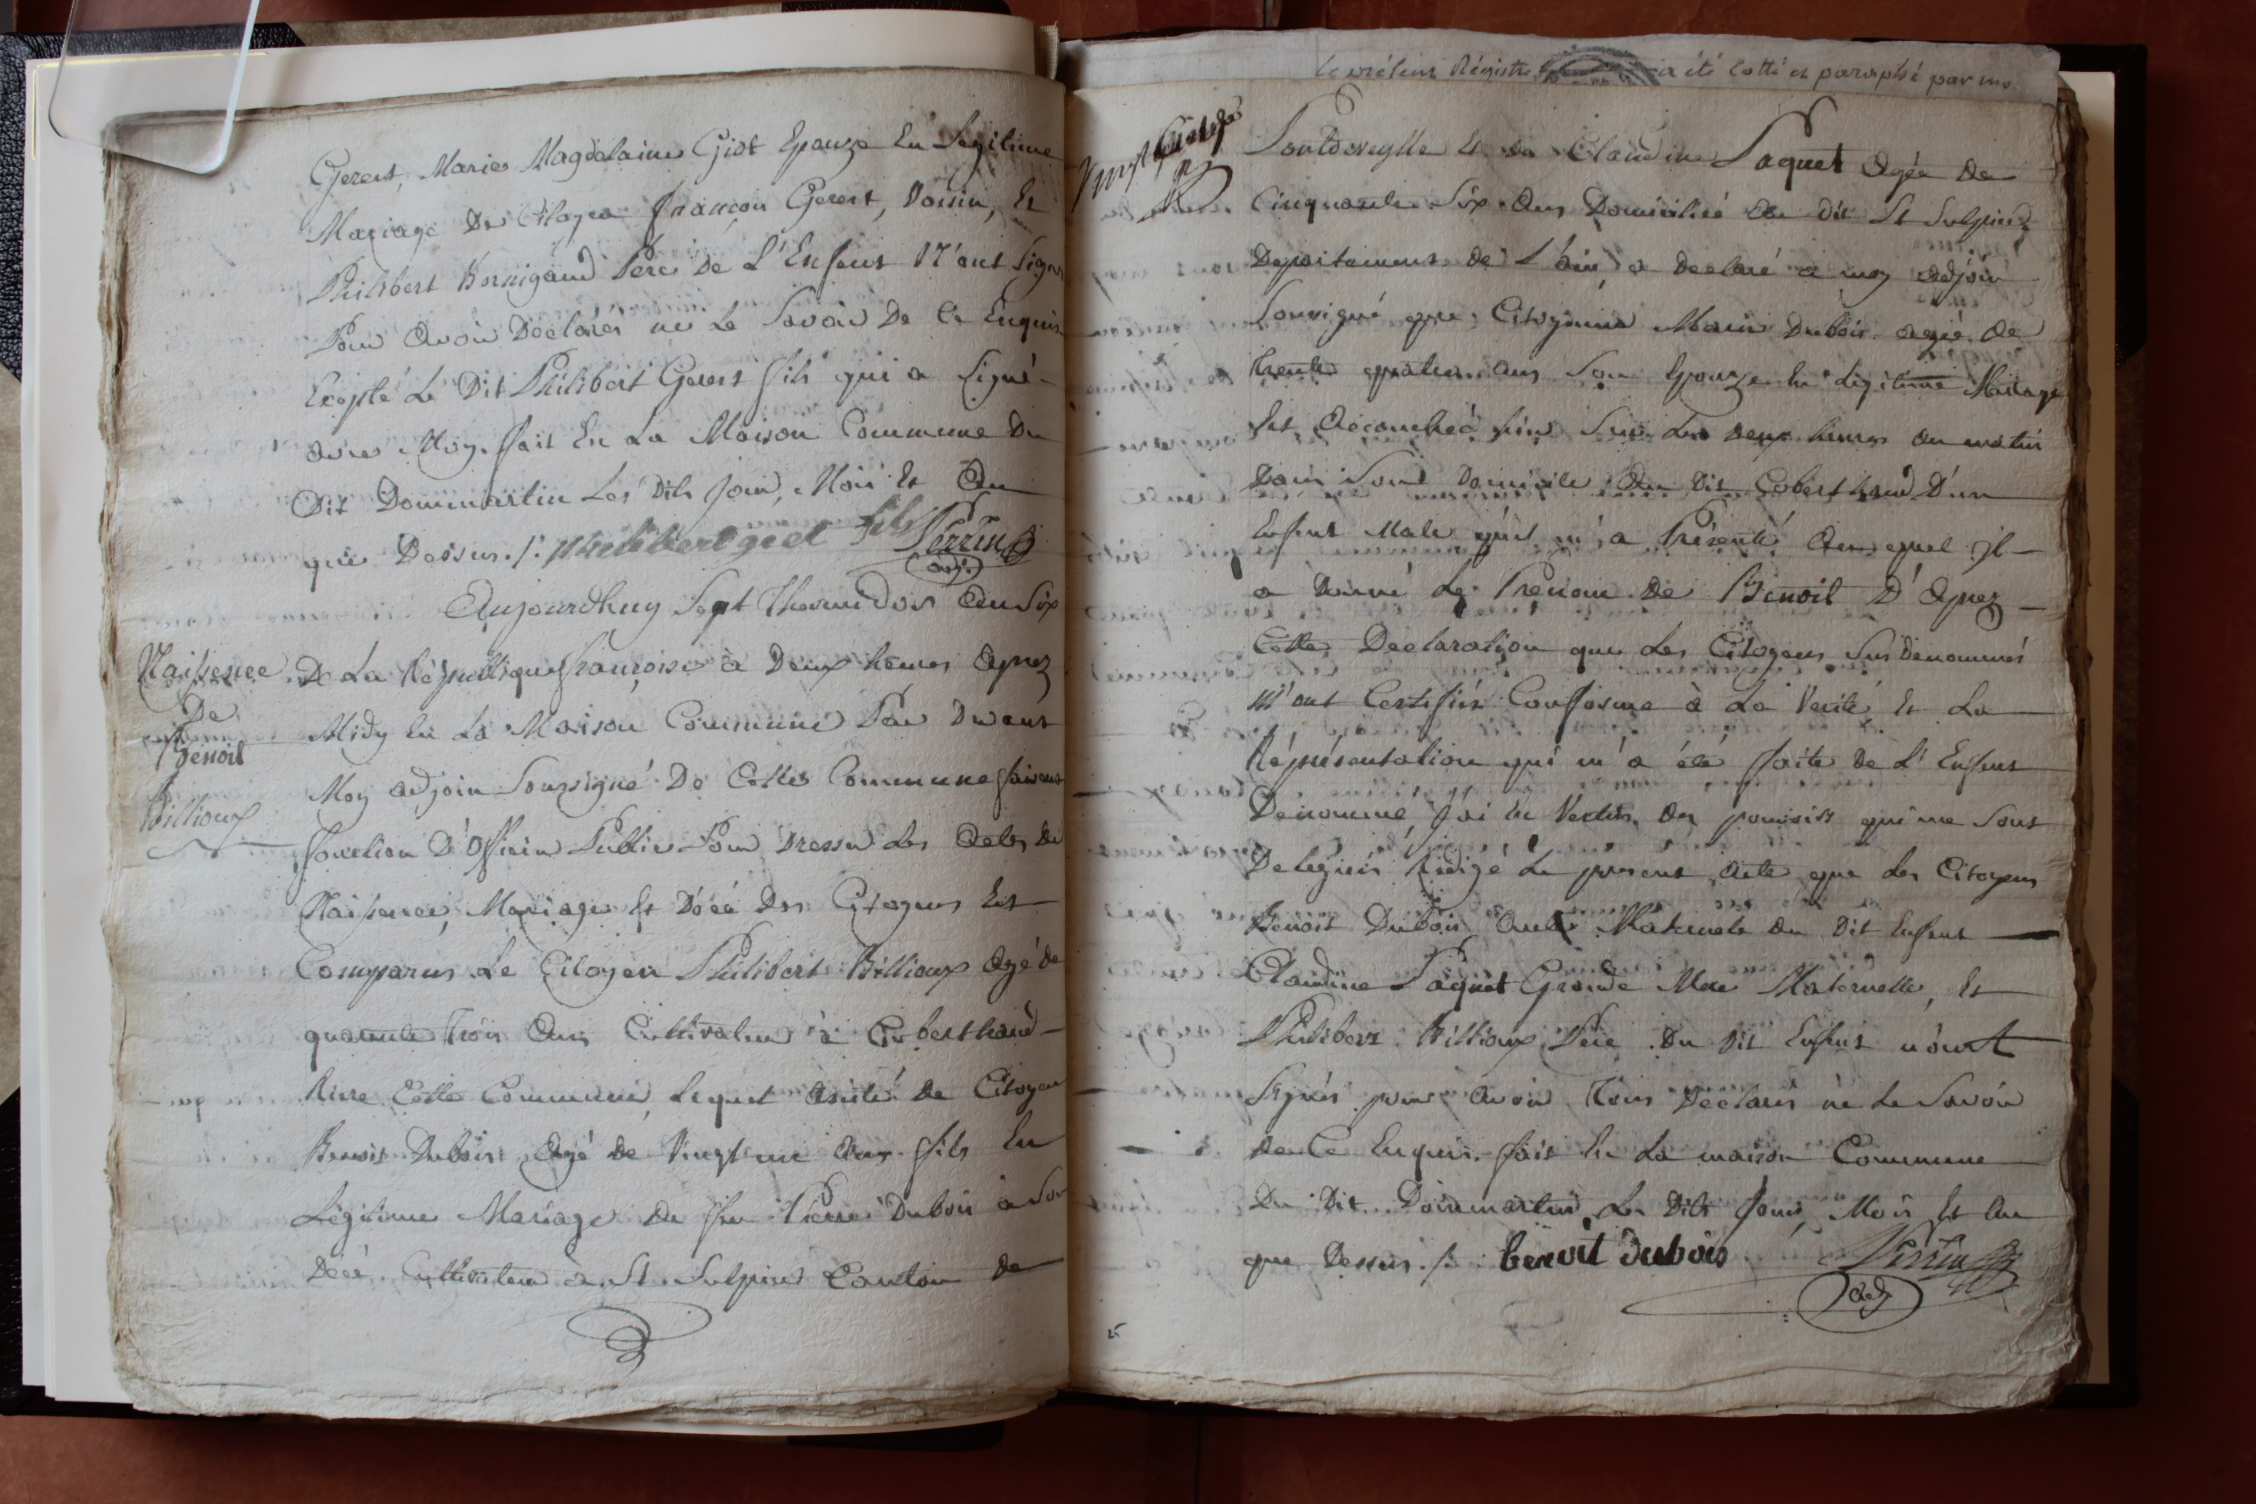 Gerest, Marie Magdelaine Giot Epouze En Legitime
Mariage De Citoyen françois Gerest, Voisin, Et
Philibert Bornigaud Pere De L'Enfent N'ont Signé
Pour Avoir Déclarés ne Le Savoir De Ce Enquis
Exépté Le Dit Philibert Gerest fils qui a Signé
avec Moy. fait En La Maison Commune Du
Dit Dommartin Les Dits Jour, Mois Et An
que Dessus ./. philibert giot fils Perrin
adj.
Aujourdhuy Sept Thermidor An Six
Naissence
De
Benoit
Billioux
De La République françoise à Deux heures Aprez
Midy En La Maison Commune Par Devant
Moy adjoin Soussigné De Cette Commune faisant
fonction D'Officier Public Pour Dresser Les Actes De
Naissence, Mariage Et Décé Des Citoyens Est
Comparus Le Citoyen Philibert Billioux Agé de
quarente trois Ans Cultivateur à Cobert haud
Riere Cette Commune, Lequel Assité De Citoyen
Benoit Dubois Agé De Vingt un Ans fils En
Légitime Mariage De feu Pierre Dubois à Son
Décé Cultivateur à St Sulpice Canton De
le présent Régistre a été cotté et paraphé par moy
Pontdeveylle Et De Claudine Paquet Agée De
Cinquante Six Ans Domicilié Au dit St Sulpice
Departement De L'ain, a Declaré a moy Adjoin
Soussigné que Citoyenne Marie Dubois agée De
trente quatre ans Son Epouze En Légitime Mariage
Est Accouchée hier Sur Les Deux heures Du matin
Dans Son Domicile Au Dit Cobert haud D'un
Enfent Male qu'il m'a Présenté Auquel Il
a Donné Le Prenom De Benoit D'Aprez
Cette Declaration que Les Citoyens Susdenommés
M'ont Certifiés Conforme à La Verité, Et La
Réprésentation qui m'a été faite De L'Enfent
Denommé, J'ai En Vertus Des pouvoirs qui me Sont
Delegués Rédigé Le present Acte que Les Citoyens
Benoit Dubois Oncle Maternele Du Dit Enfent
Claudine Paquet Grande Mere Maternelle, Et
Philibert Billioux Pere Du Dit Enfent n'ont
Signés pour Avoir tous Déclarés ne Le Savoir
De Ce Enquis. fait En La maison Commune
Du Dit Dommartin Les Dits Jour, Mois Et An
que Dessus ./. benoit dubois Perrin
adj